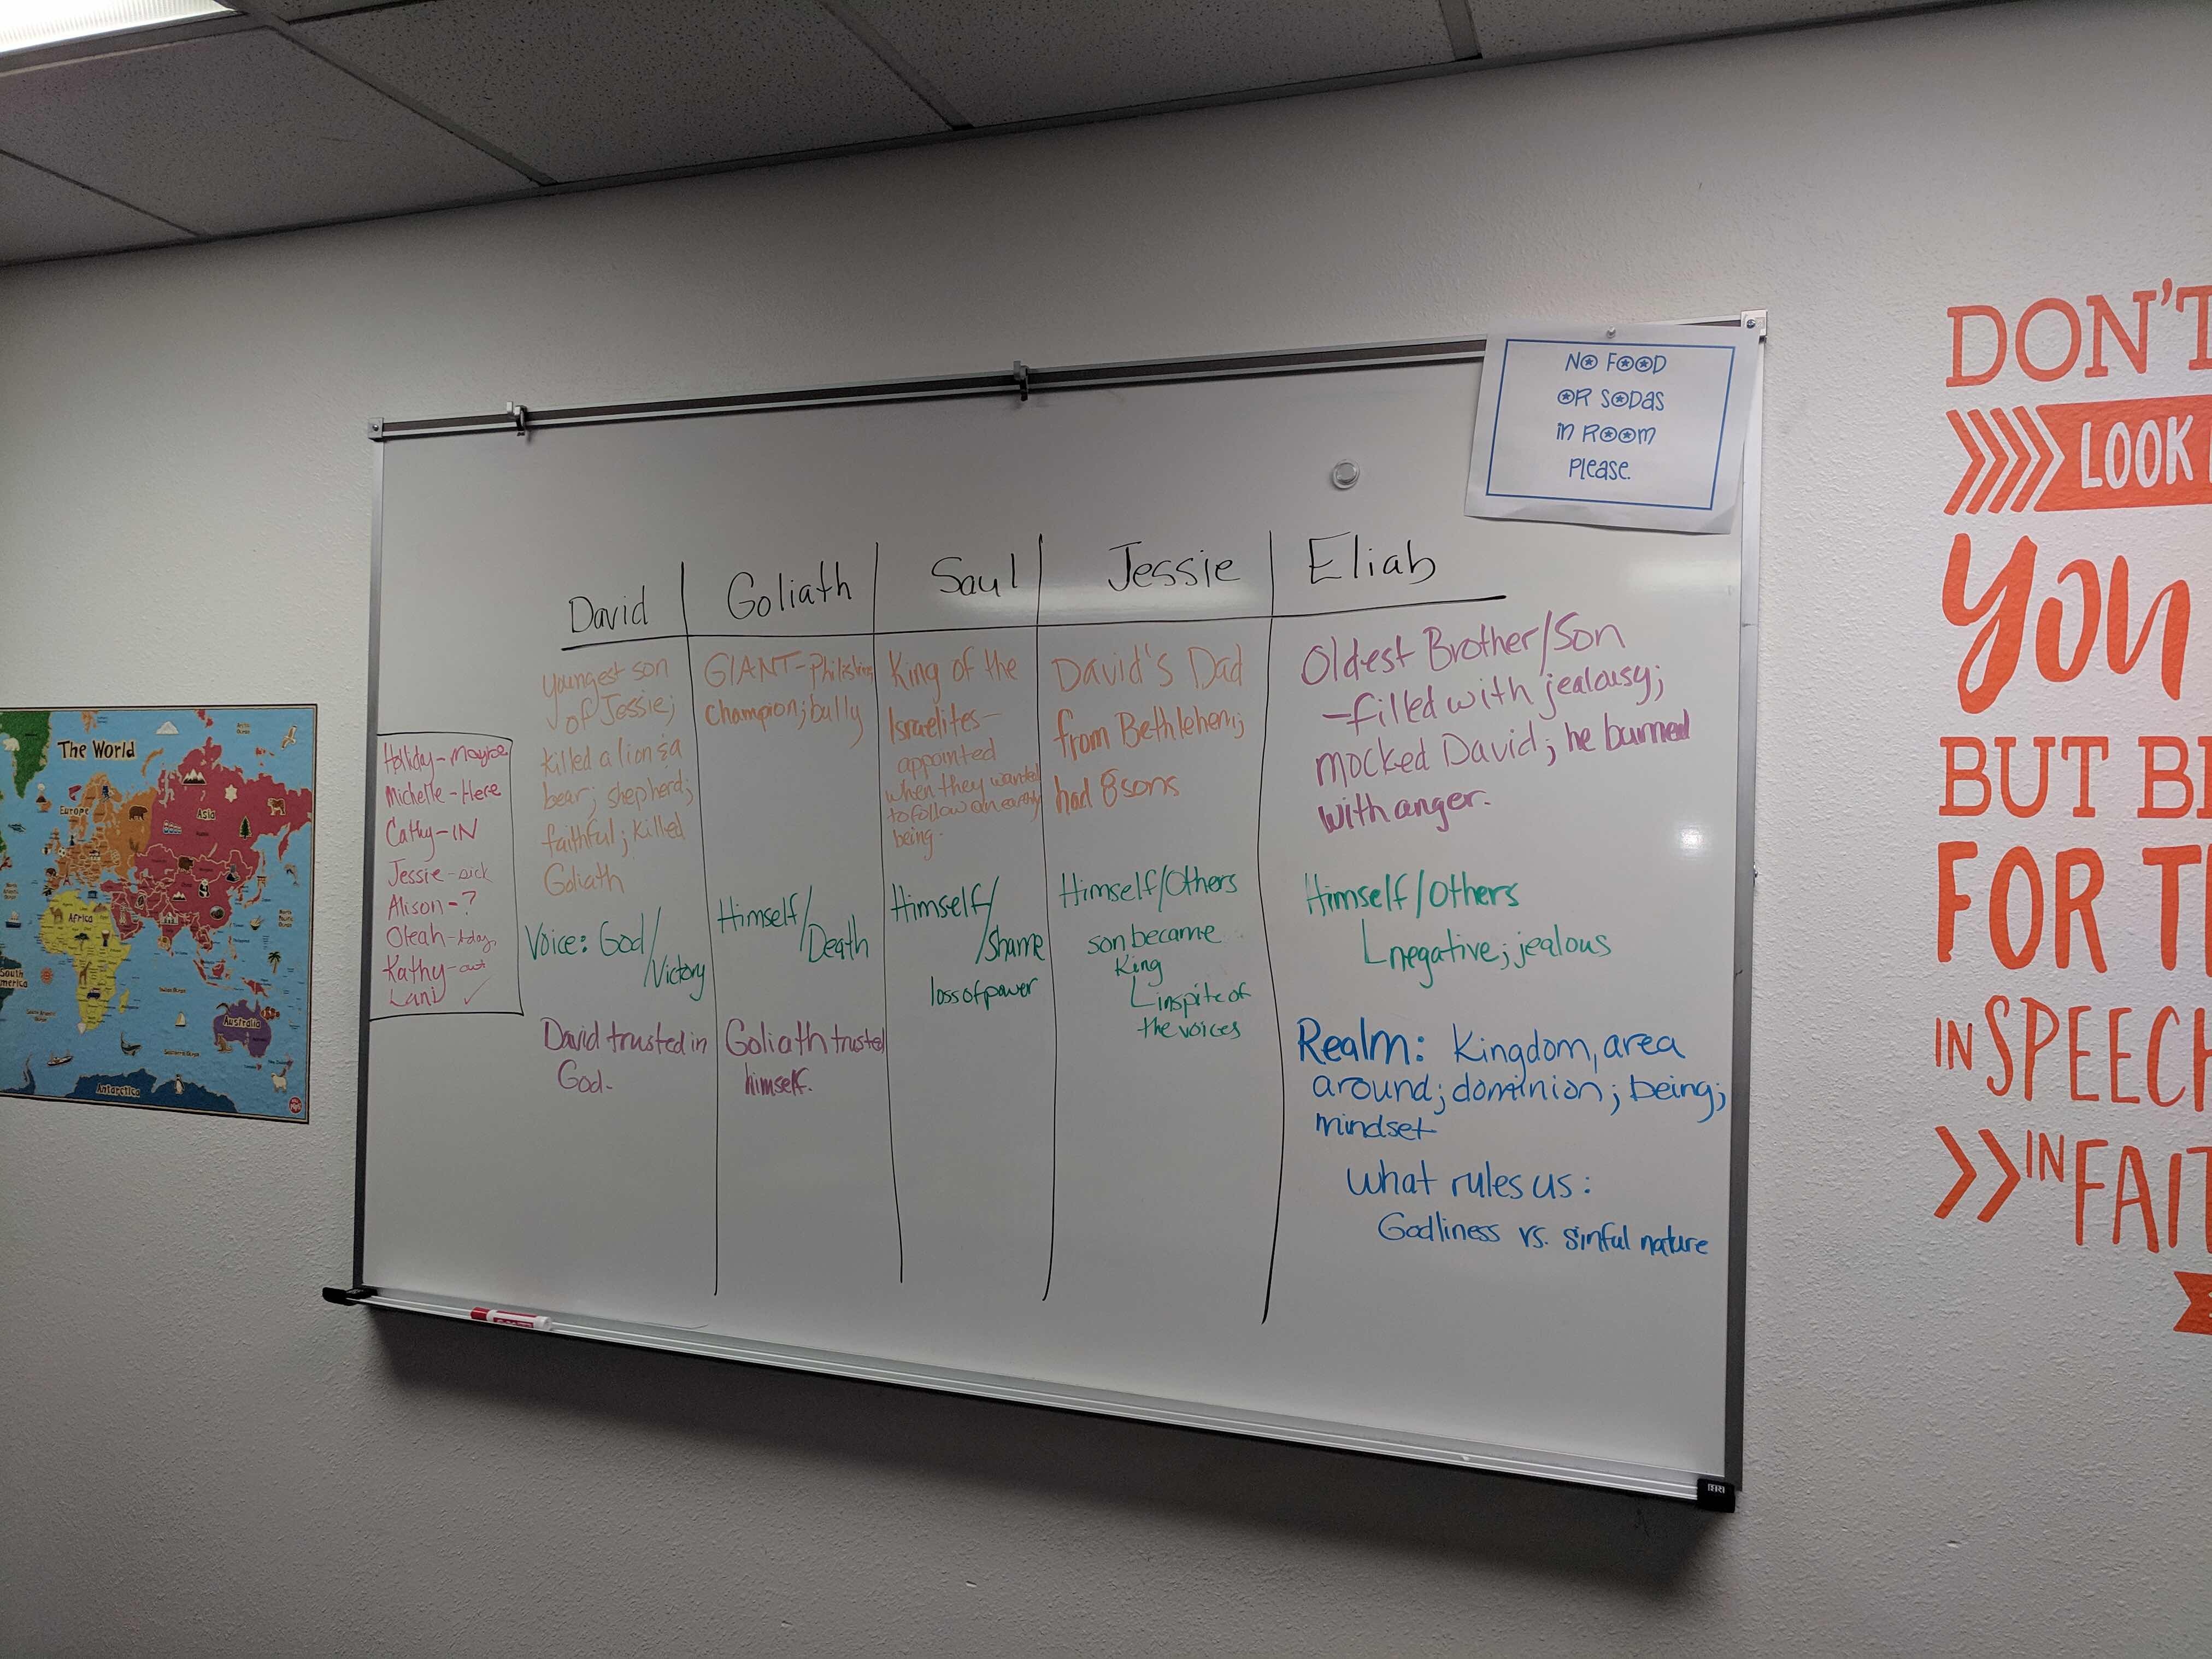 NO FOOD
OR SODAS
IN ROOM
PLEASE.
David
Goliath
Saul
Jessie
Eliab
youngest son
of Jessie;
killed a lion & a
bear; shepherd;
faithful; killed
Goliath
Voice: God/
Victory
David trusted in
God.
GIANT-
champion; bully
Himself/
Death
Goliath trusted
himself.
King of the
Israelites-
appointed
when they wanted
to follow an earthly
being.
Himself/
Shame
loss of power
David's Dad
from Bethlehem;
had 8 sons
Himself/Others
son became
King
inspite of
the voices
Oldest Brother/Son
-filled with jealousy;
mocked David; he burned
with anger.
Himself/Others
negative; jealous
Realm: Kingdom, area
around; dominion; being;
mindset
What rules us:
Godliness vs. sinful nature
Holiday-Maybe
Michelle-Here
Cathy-IN
Jessie-sick
Alison-?
Oleah-
Kathy-out
Lani ✓
The World
Europe
Asia
Africa
South
America
Australia
Antarctica
DON'T
LOOK
YOU
BUT B
FOR T
IN SPEECH
IN FAIT